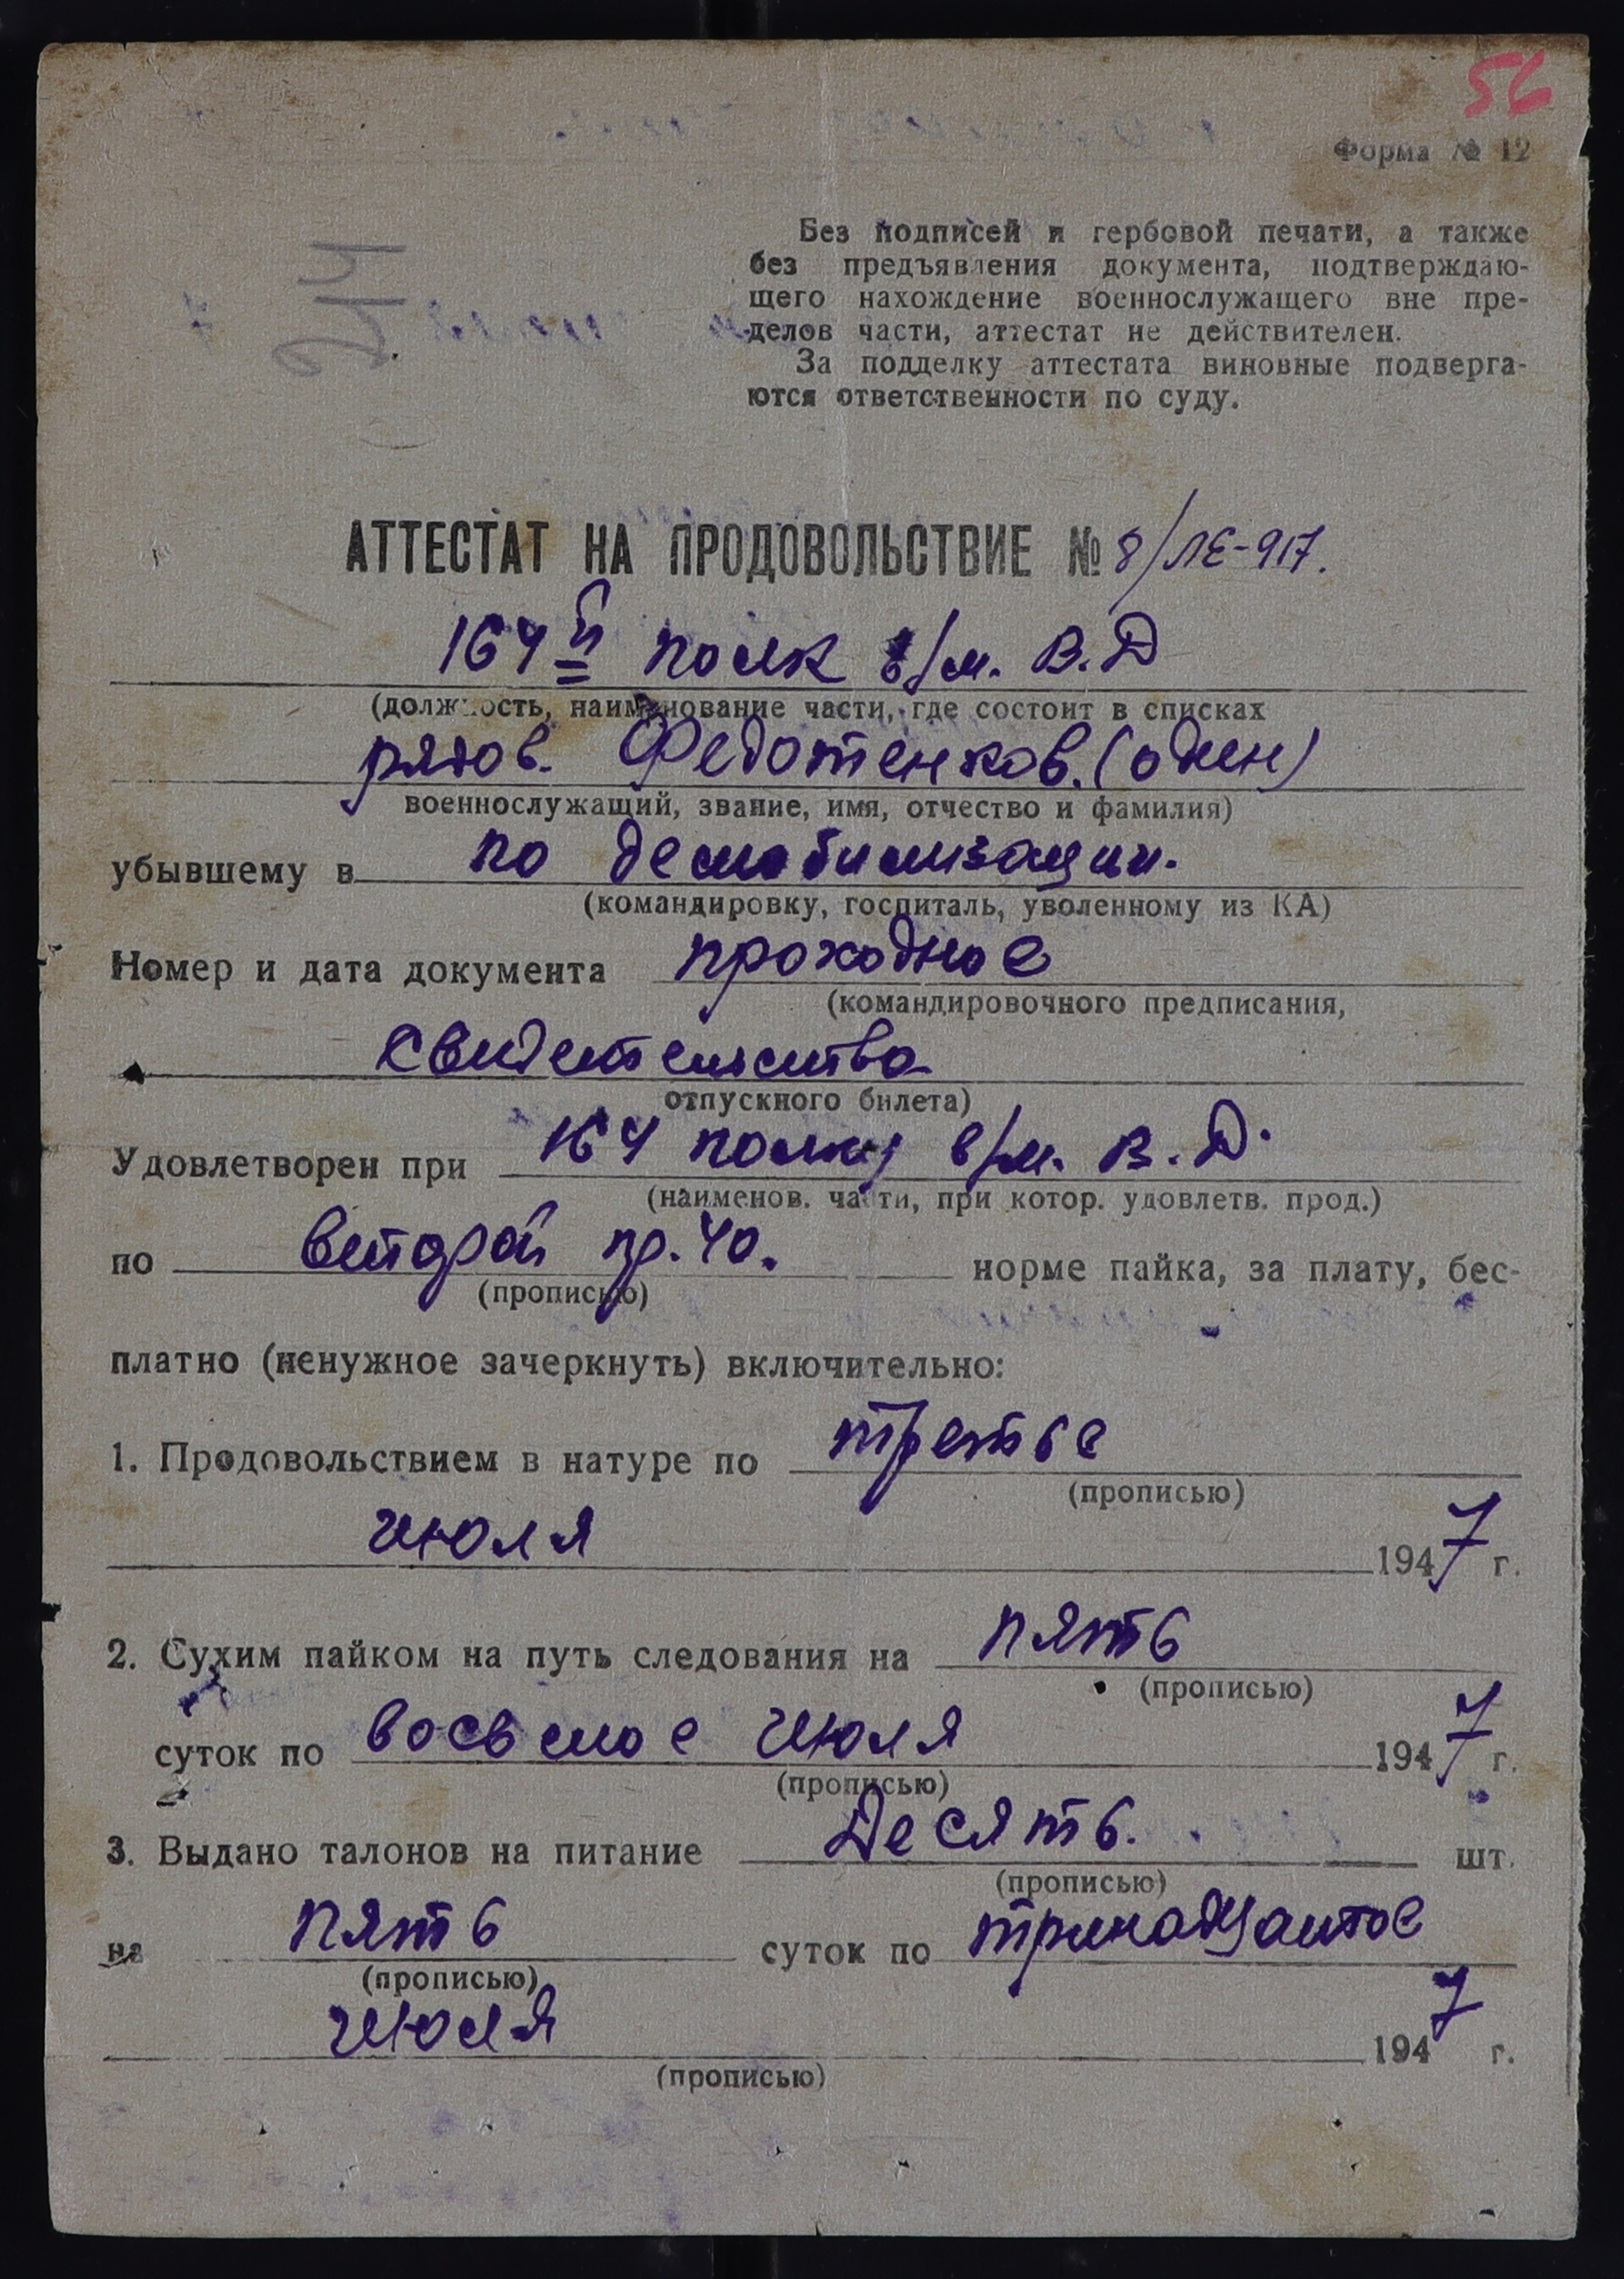 56
Форма № 12
244
Без подписей и гербовой печати, а также
без предъявления документа, подтверждаю-
щего нахождение военнослужащего вне пре-
делов части, аттестат не действителен.
За подделку аттестата виновные подверга-
ются ответственности по суду.
АТТЕСТАТ НА ПРОДОВОЛЬСТВИЕ № 8/ЛЕ-917.
164й полк в/м. В.Д
(должность, наименование части, где состоит в списках
рядов. Федотенков. (один)
военнослужащий, звание, имя, отчество и фамилия)
убывшему в по демобилизации.
(командировку, госпиталь, уволенному из КА)
Номер и дата документа проходное
(командировочного предписания,
свидетельства
отпускного билета)
Удовлетворен при 164 полку в/м. В.Д.
(наименов. части, при котор. удовлетв. прод.)
по второй пр. 40. норме пайка, за плату, бес-
(прописью)
платно (ненужное зачеркнуть) включительно:
1. Продовольствием в натуре по третье
(прописью)
июля 1947 г.
2. Сухим пайком на путь следования на пять
(прописью)
суток по восьмое июля 1947 г.
(прописью)
3. Выдано талонов на питание Десять. шт.
(прописью)
на пять суток по тринадцатое
(прописью)
июля 1947 г.
(прописью)